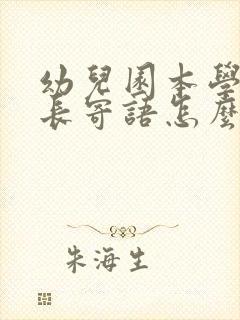 幼兒園本學
長寄語怎麼
朱海生